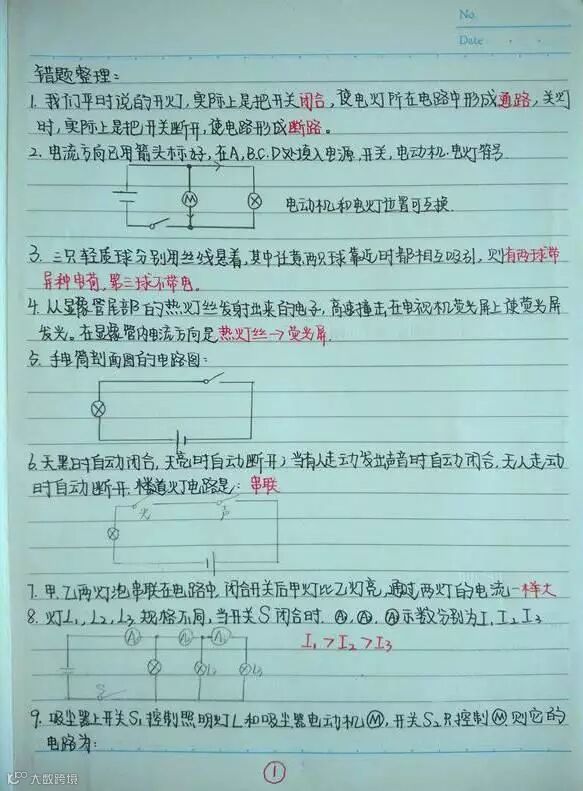 No.
Date
错题整理：
1. 我们平时说的开灯，实际上是把开关闭合，使电灯所在电路中形成通路，关灯
时，实际上是把开关断开，使电路形成断路。
2. 电流方向已用箭头标好，在A、B、C、D处填入电源、开关，电动机、电灯符号
M
电动机和电灯位置可互换.
3. 三只轻质球分别用丝线悬着，其中任意两只球靠近时都相互吸引，则有两球带
异种电荷，第三球不带电。
4. 从显像管尾部的热灯丝发射出来的电子，高速撞击在电视机荧光屏上使荧光屏
发光。在显像管内电流方向是热灯丝→荧光屏.
5. 手电筒剖面图的电路图：
6. 天黑时自动闭合，天亮时自动断开；当有人走动发出声音时自动闭合，无人走动
时自动断开. 楼道灯电路是：串联
光 声
7. 甲、乙两灯泡串联在电路中，闭合开关后甲灯比乙灯亮，通过两灯的电流一样大
8. 灯L₁、L₂、L₃规格不同，当开关S闭合时. A₁、A₂、A₃示数分别为I₁ I₂ I₃
I₁>I₂>I₃
A₁ A₂ A₃
L₂ L₃
S
9. 吸尘器上开关S₁控制照明灯L和吸尘器电动机M，开关S₂只控制M，则它的
电路为：
1
大数跨境